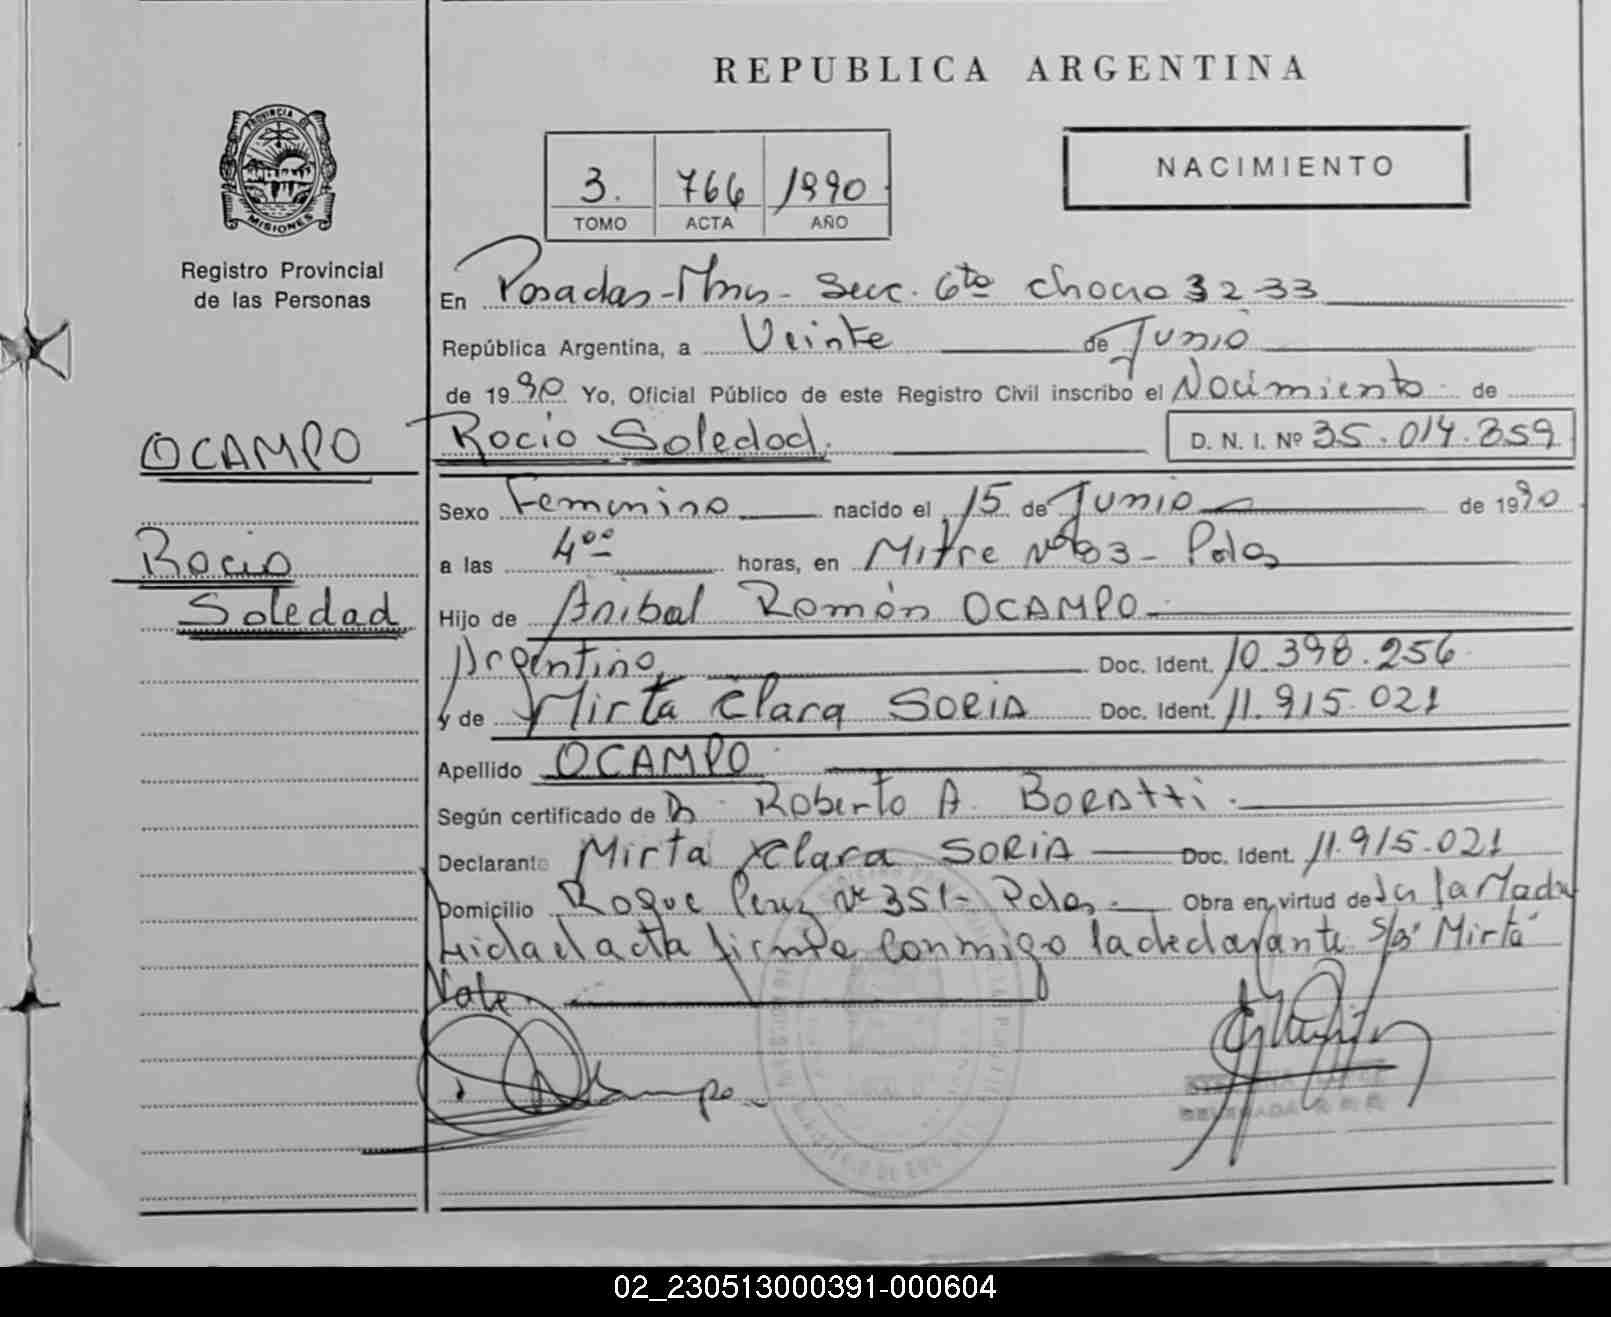 REPUBLICA ARGENTINA
PROVINCIA DE
MISIONES
Registro Provincial
de las Personas
3. 766 1990
TOMO ACTA AÑO
NACIMIENTO
En Posadas-Mnes- Secc. 6ta Chaco 3233
República Argentina, a Veinte de Junio
de 1990 Yo, Oficial Público de este Registro Civil inscribo el Nacimiento de
OCAMPO
Rocio Soledad. D. N. I. Nº 35.014.859
Sexo Femenino nacido el 15 de Junio de 1990
Rocio
a las 4ºº horas, en Mitre Nº 83- Pdas
Soledad
Hijo de Anibal Román OCAMPO
Argentino Doc. Ident. 10.398.256
y de Mirta Clara SORIA Doc. Ident. 11.915.021
Apellido OCAMPO
Según certificado de Dr. Roberto A. BORATTI.
Declarante Mirta Clara SORIA Doc. Ident. 11.915.021
Domicilio Roque Perez Nº 351- Pdas. Obra en virtud de ser la Madre
Leida el acta firma conmigo la declarante S/b' Mirta
Vale.
Ocampo
02_230513000391-000604